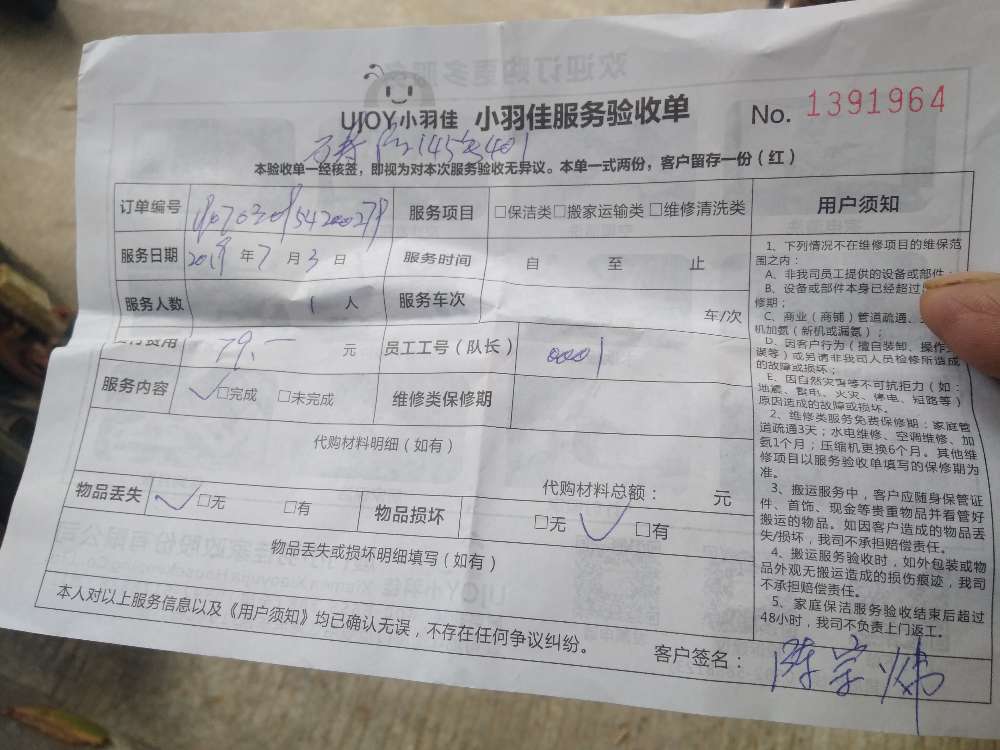 UJOY小羽佳 小羽佳服务验收单 No. 1391964
145号401
本验收单一经核签，即视为对本次服务验收无异议。本单一式两份，客户留存一份（红）
订单编号 服务项目 □保洁类□搬家运输类□维修清洗类
服务日期 2019年7月3日 服务时间 自 至 止
服务人数 1人 服务车次 车/次
费用 79.— 元 员工工号（队长） 0001
服务内容 ✓□完成 □未完成 维修类保修期
代购材料明细（如有）
代购材料总额： 元
物品丢失 ✓□无 □有 物品损坏 □无 ✓□有
物品丢失或损坏明细填写（如有）
本人对以上服务信息以及《用户须知》均已确认无误，不存在任何争议纠纷。
客户签名：
用户须知
1、下列情况不在维修项目的维保范
围之内：
A、非我司员工提供的设备或部件；
B、设备或部件本身已经超过
修期；
C、商业（商铺）管道疏通、
机加氨（新机或漏氨）；
D、因客户行为（擅自装卸、操作
误等）或另请非我司人员检修所造成
的故障或损坏；
E、因自然灾害等不可抗拒力（如：
地震、雷电、火灾、停电、短路等）
原因造成的故障或损坏。
2、维修类服务免费保修期：家庭管
道疏通3天；水电维修、空调维修、加
氨1个月；压缩机更换6个月。其他维
修项目以服务验收单填写的保修期为
准。
3、搬运服务中，客户应随身保管证
件、首饰、现金等贵重物品并看管好
搬运的物品。如因客户造成的物品丢
失/损坏，我司不承担赔偿责任。
4、搬运服务验收时，如外包装或物
品外观无搬运造成的损伤痕迹，我司
不承担赔偿责任。
5、家庭保洁服务验收结束后超过
48小时，我司不负责上门返工。